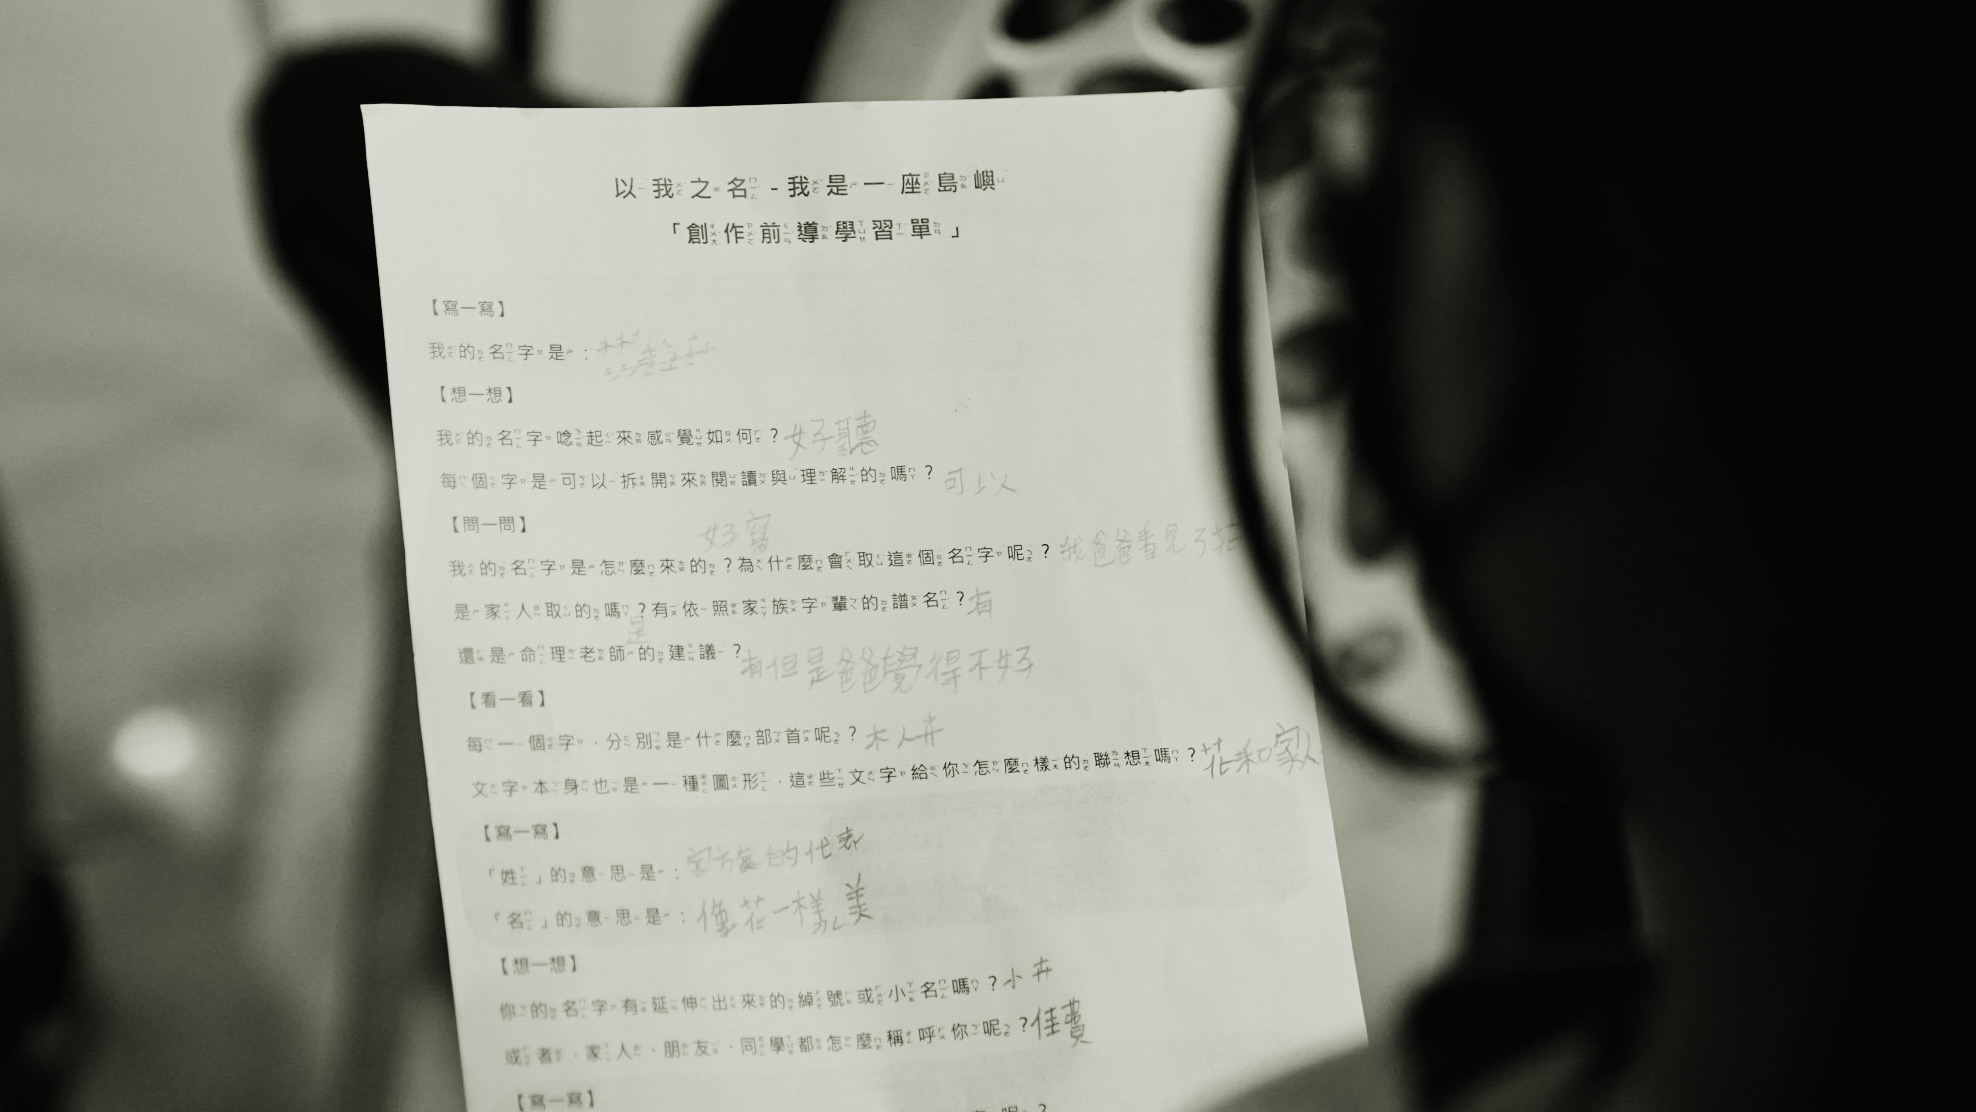 以我之名-我是一座島嶼
「創作前導學習單」
【寫一寫】
我的名字是：
【想一想】
我的名字唸起來感覺如何？好聽
每個字是可以拆開來閱讀與理解的嗎？可以
【問一問】
好寫
我的名字是怎麼來的？為什麼會取這個名字呢？我爸爸看見了花
是家人取的嗎？有依照家族字輩的譜名？有
是
還是命理老師的建議？有但是爸爸覺得不好
【看一看】
每一個字，分別是什麼部首呢？木人卉
文字本身也是一種圖形，這些文字給你怎麼樣的聯想嗎？花和家人
【寫一寫】
「姓」的意思是：家族的代表
「名」的意思是：像花一樣美
【想一想】
你的名字有延伸出來的綽號或小名嗎？小卉
或者，家人、朋友、同學都怎麼稱呼你呢？佳
【寫一寫】
呢？